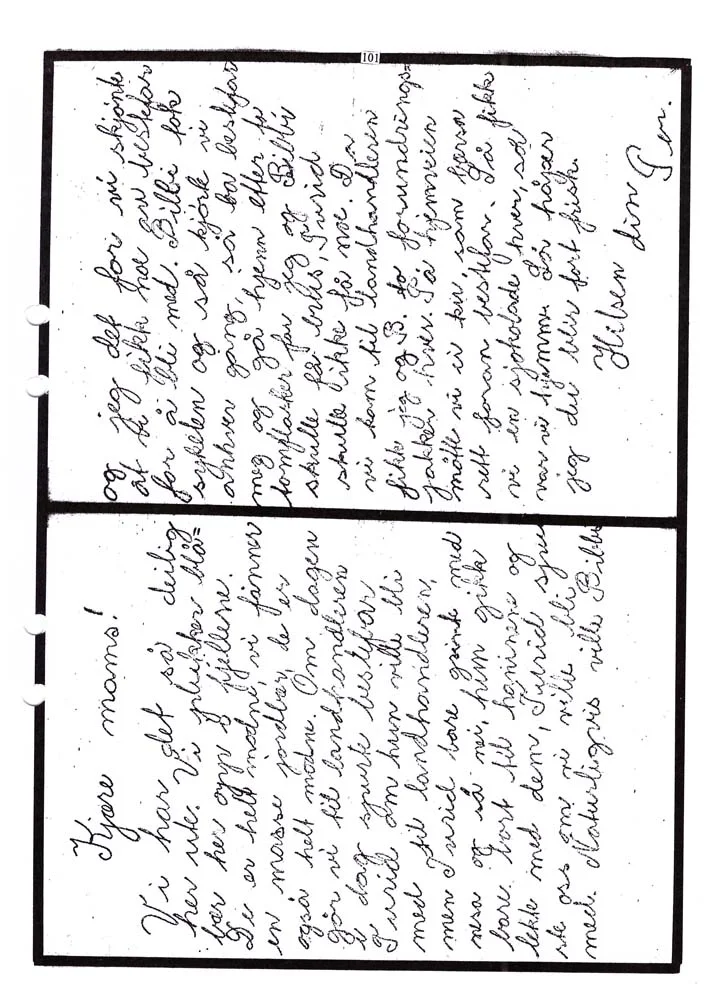 101
Kjære mams!
Vi har det så deilig
her ute. Vi plukker blå=
bær her opp i fjellene.
De er helt modni, vi fånner
en masse jordbær, de er
også helt modne. Om dagen
går vi til landhandleren
i dag spurte bestefar
Turid om hun ville bli
med til landhandleren,
men Turid bare grinte med
nesa og så nei, hun gikk
bare bort til haninene og
lekte med dem, Turid spur
te oss om vi ville bli
med. Naturligvis ville Bibbi
og jeg det for vi skjønte
at vi fikk noe av bestefar
for å bli med. Bibbi tok
sykelen og så kjørte vi
annhver gang, så ba bestefar
meg og gå hjem etter to
tomflasker før jeg og Bibbi
skulle få brus, Turid
skulle ikke få noe. Da
vi kom til landhandleren
fikk jeg og B. to forundrings=
pakker hver. På hjemveien
møtte vi ei kir, som
rett foran bestefar. Så fikk
vi en sjokolade hver, så
var vi hjemme. Så håper
jeg du blir fort frisk.
Hilsen din
Per.